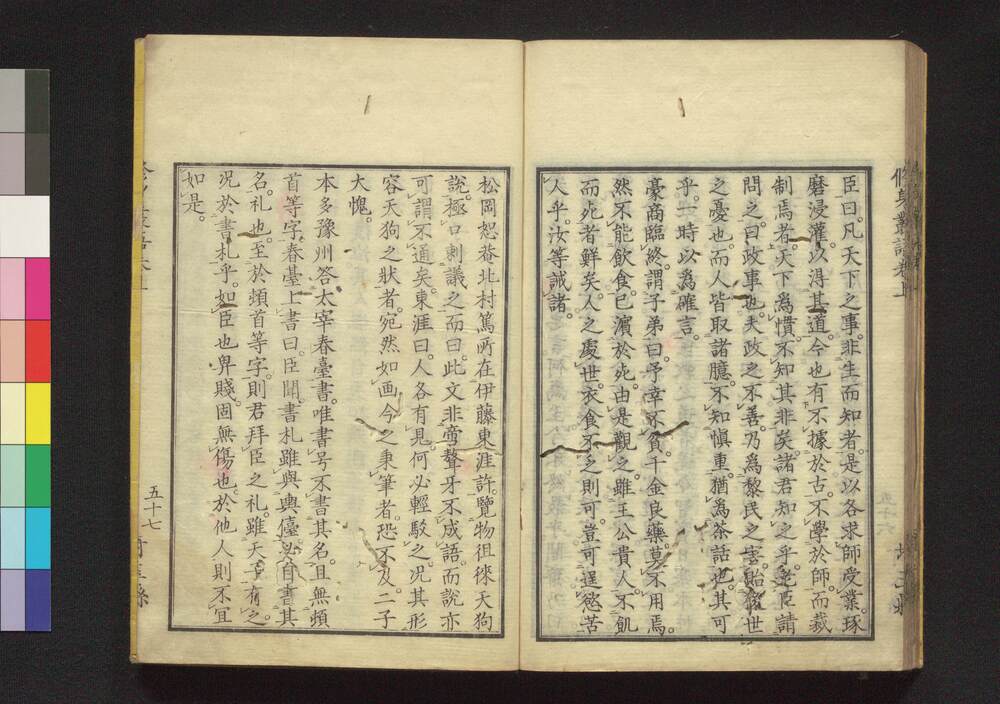 臣曰。凡天下之事。非生而知者。是以各求師受業。琢
磨浸灌。以得其道。今也有不據於古。不學於師。而裁
制焉者。天下爲憤。不知其非矣。諸君知之乎。老臣請
問之。曰。政事也。夫政之不善。乃爲黎民之害。貽後世
之憂也。而人皆取諸臆。不知愼重。猶爲茶話也。其可
乎。一時以爲確言。
豪商臨終。謂子弟曰。予幸不貧。千金良藥。莫不用焉。
然不能飲食。已瀕於死。由是觀之。雖王公貴人。不飢
而死者鮮矣。人之處世。衣食不乏則可。豈可逞慾苦
人乎。汝等誡諸。
五十六
松岡恕菴北村篤所在伊藤東涯許。覽物徂徠天狗
說。極口刺議之。而曰。此文非啻聱牙不成語。而說亦
可謂不道矣。東涯曰。人各有見。何必輕駁之。况其形
容天狗之狀者。宛然如画。今之秉筆者。恐不及。二子
大愧。
本多豫州答太宰春臺書。唯書号不書其名。且無頓
首等字。春臺上書曰。臣聞。書札雖與輿儓。必自書其
名。礼也。至於頓首等字。則君拜臣之礼。雖天子有之。
况於書札乎。如臣也卑賤。固無傷也。於他人則不宜
如是。
五十七